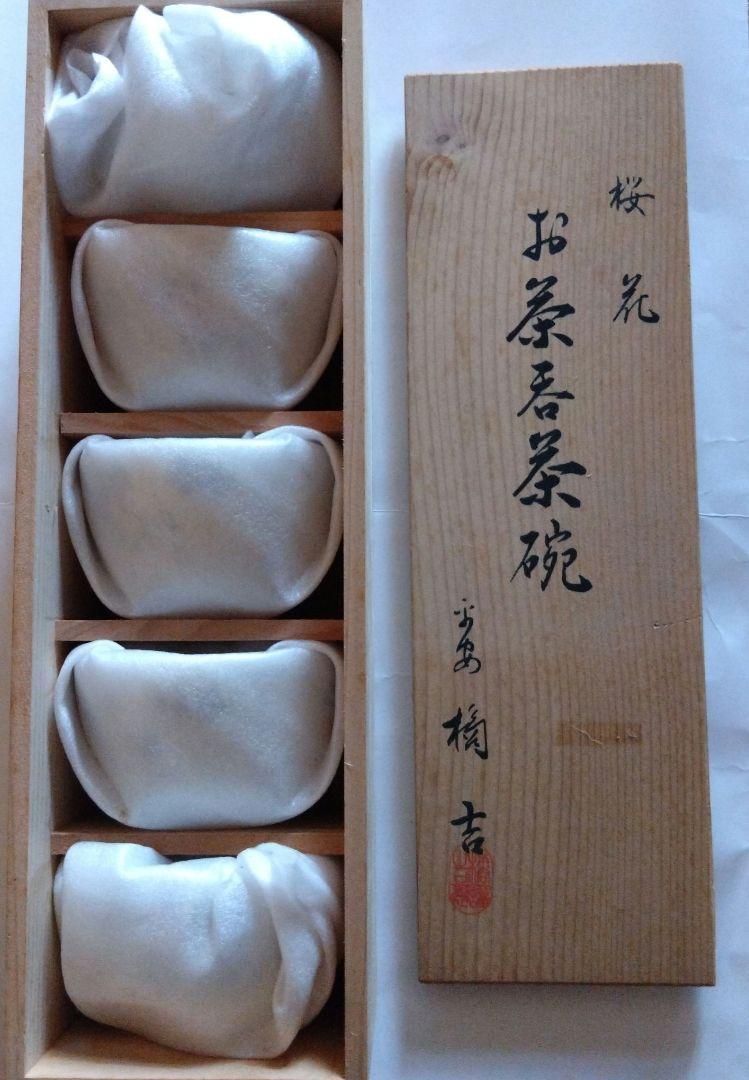 桜花
お茶呑茶碗
平安 橘吉